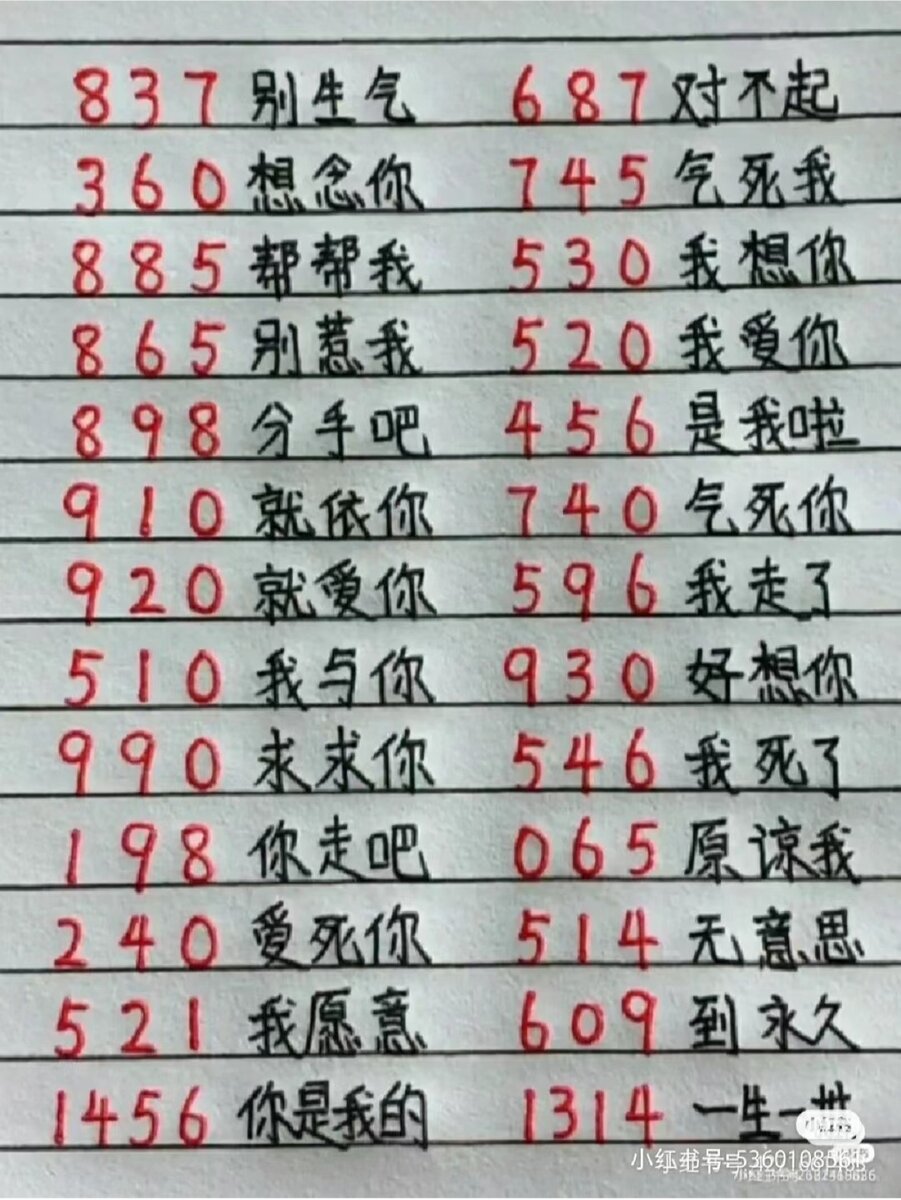 837 别生气 687 对不起
360 想念你 745 气死我
885 帮帮我 530 我想你
865 别惹我 520 我爱你
898 分手吧 456 是我啦
910 就依你 740 气死你
920 就爱你 596 我走了
510 我与你 930 好想你
990 求求你 546 我死了
198 你走吧 065 原谅我
240 爱死你 514 无意思
521 我愿意 609 到永久
1456 你是我的 1314 一生一世
小红书号